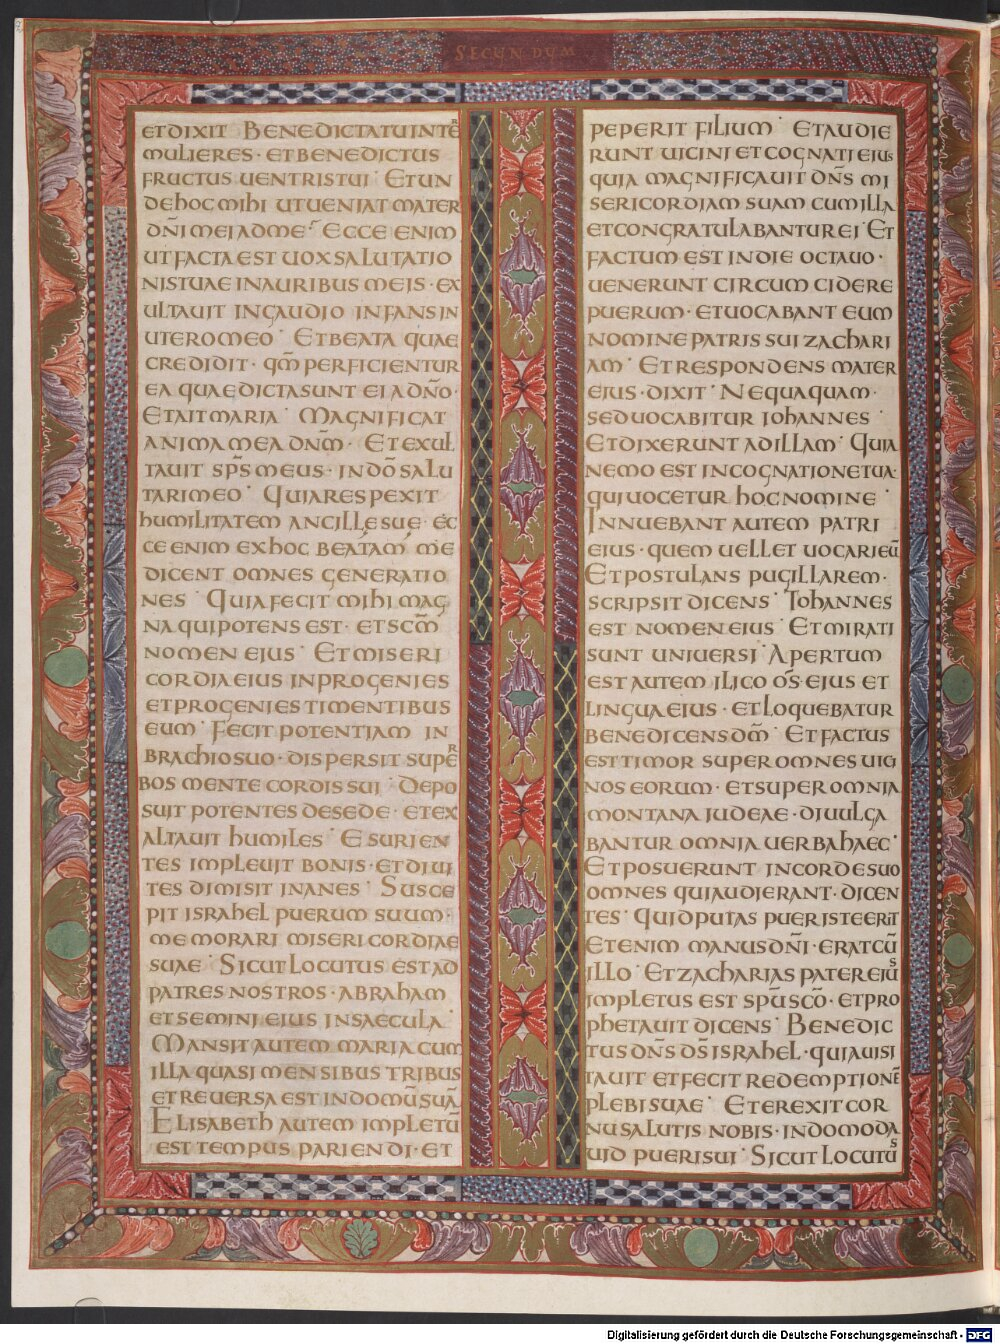 SECUNDUM
ETDIXIT BENEDICTATUINTER
MULIERES · ETBENEDICTUS
FRUCTUS UENTRISTUI · ETUN
DEHOCMIHI UTUENIATMATER
DN̄IMEIADME · ECCEENIM
UTFACTAEST UOXSALUTATIO
NISTUAE INAURIBUS MEIS · EX
ULTAUIT INGAUDIO INFANSIN
UTEROMEO · ETBEATA QUAE
CREDIDIT · QM̄PERFICIENTUR
EA QUAEDICTASUNT EIADN̄O ·
ETAITMARIA · MAGNIFICAT
ANIMAMEA DN̄M · ETEXUL
TAUIT SPS̄MEUS · INDŌSALU
TARIMEO · QUIARESPEXIT
HUMILITATEM ANCILLĘSUE · EC
CEENIM EXHOC BEATAM ME
DICENT OMNES GENERATIO
NES · QUIAFECIT MIHIMAG
NAQUIPOTENSEST · ETSCM̄
NOMENEIUS · ETMISERI
CORDIAEIUS INPROGENIES
ETPROGENIESTIMENTIBUS
EUM · FECITPOTENTIAM IN
BRACHIOSUO · DISPERSIT SUPER
BOS MENTE CORDISSUI · DEPO
SUIT POTENTES DESEDE · ETEX
ALTAUIT HUMILES · ESURIEN
TES IMPLEUIT BONIS · ETDIUI
TES DIMISIT INANES · SUSCE
PIT ISRAHEL PUERUM SUUM ·
MEMORARI MISERICORDIAE
SUAE · SICUTLOCUTUS ESTAD
PATRESNOSTROS · ABRAHAM
ETSEMINIEIUS INSAECULA ·
MANSITAUTEM MARIACUM
ILLAQUASIMENSIBUS TRIBUS
ETREUERSAESTINDOMŪSUĀ
ELISABETH AUTEM IMPLETŪ
ESTTEMPUS PARIENDI · ET
PEPERIT FILIUM · ETAUDIE
RUNT UICINIETCOGNATIEIUS
QUIA MAGNIFICAUIT DN̄S MI
SERICORDIAM SUAM CUMILLA
ETCONGRATULABANTUREI · ET
FACTUM EST INDIE OCTAUO ·
UENERUNT CIRCUMCIDERE
PUERUM · ETUOCABANT EUM
NOMINEPATRIS SUIZACHARI
AM · ETRESPONDENS MATER
EIUS · DIXIT · NEQUAQUAM ·
SEDUOCABITUR IOHANNES ·
ETDIXERUNTADILLAM · QUIA
NEMOESTINCOGNATIONETUA ·
QUIUOCETUR HOCNOMINE ·
INNUEBANT AUTEM PATRI
EIUS · QUEM UELLET UOCARIEŪ
ETPOSTULANS PUGILLAREM ·
SCRIPSITDICENS · IOHANNES
EST NOMENEIUS · ETMIRATI
SUNT UNIUERSI · APERTUM
ESTAUTEM ILICO OS̄ · EIUS ET
LINGUAEIUS · ETLOQUEBATUR
BENEDICENSDM̄ · ETFACTUS
ESTTIMOR SUPEROMNESUICI
NOS EORUM · ETSUPEROMNIA
MONTANA IUDEAE · DIUULGA
BANTUR OMNIA UERBAHAEC ·
ETPOSUERUNT INCORDESUO
OMNES QUIAUDIERANT · DICEN
TES · QUIDPUTAS PUERISTEERIT
ETENIM MANUSDN̄I · ERATCŪ
ILLO · ETZACHARIAS PATEREIUS
IMPLETUS EST SPŪSCŌ · ETPRO
PHETAUIT DICENS · BENEDIC
TUSDN̄S DS̄ISRAHEL · QUIAUISI
TAUIT ETFECIT REDEMPTIONĒ
PLEBISUAE · ETEREXITCOR
NUSALUTIS NOBIS · INDOMODA
UID PUERISUI · SICUTLOCUTUS
Digitalisierung gefördert durch die Deutsche Forschungsgemeinschaft - DFG